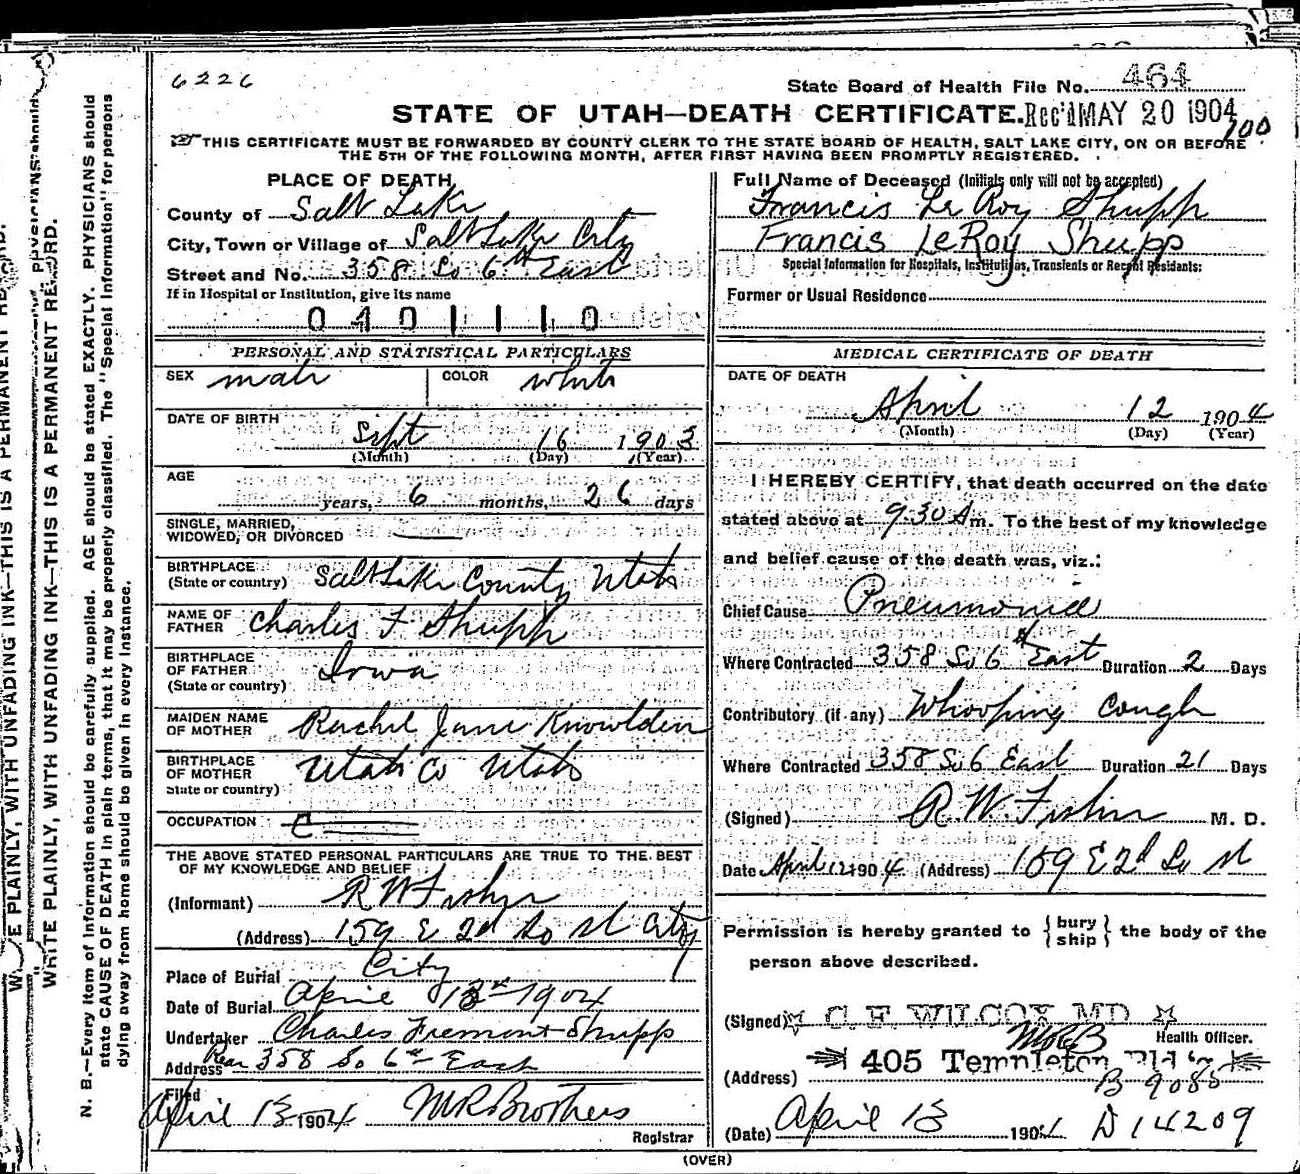 6226
State Board of Health File No. 464
STATE OF UTAH—DEATH CERTIFICATE. Rec'd MAY 20 1904
100
THIS CERTIFICATE MUST BE FORWARDED BY COUNTY CLERK TO THE STATE BOARD OF HEALTH, SALT LAKE CITY, ON OR BEFORE
THE 5TH OF THE FOLLOWING MONTH, AFTER FIRST HAVING BEEN PROMPTLY REGISTERED.
PLACE OF DEATH
County of Salt Lake
City, Town or Village of Salt Lake City
Street and No. 358 So 6th East
If in Hospital or Institution, give its name
0401110
PERSONAL AND STATISTICAL PARTICULARS
SEX male COLOR white
DATE OF BIRTH
Sept 16 1903
(Month) (Day) (Year)
AGE
years, 6 months, 26 days
SINGLE, MARRIED,
WIDOWED, OR DIVORCED
BIRTHPLACE
(State or country) Salt Lake County Utah
NAME OF
FATHER Charles F Shupp
BIRTHPLACE
OF FATHER Iowa
(State or country)
MAIDEN NAME
OF MOTHER Rachel Jane Knowlden
BIRTHPLACE
OF MOTHER Utah Co Utah
State or country)
OCCUPATION
THE ABOVE STATED PERSONAL PARTICULARS ARE TRUE TO THE BEST
OF MY KNOWLEDGE AND BELIEF
(Informant) R W Fisher
(Address) 159 E 2d So St City
Place of Burial City
Date of Burial April 13 1904
Undertaker Charles Fremont Shupp
Address Rear 358 So 6th East
Filed
April 13 1904 M R Brothers
Registrar
Full Name of Deceased (Initials only will not be accepted)
Francis Le Roy Shupp
Francis LeRoy Shupp
Special Information for Hospitals, Institutions, Transients or Recent Residents:
Former or Usual Residence
MEDICAL CERTIFICATE OF DEATH
DATE OF DEATH
April 12 1904
(Month) (Day) (Year)
I HEREBY CERTIFY, that death occurred on the date
stated above at 9.30 A m. To the best of my knowledge
and belief cause of the death was, viz.:
Chief Cause Pneumonia
Where Contracted 358 So 6th East Duration 2 Days
Contributory (if any) Whooping Cough
Where Contracted 358 So 6 East Duration 21 Days
(Signed) R. W. Fisher M. D.
Date April 12 1904 (Address) 159 E 2d So St
Permission is hereby granted to {bury
ship} the body of the
person above described.
(Signed) C. F. WILCOX, MD
MRB Health Officer.
(Address) 405 Templeton Bld'g
B 9085
(Date) April 13 1904 D 14209
(OVER)
N. B.—Every item of information should be carefully supplied. AGE should be stated EXACTLY. PHYSICIANS should
state CAUSE OF DEATH in plain terms, that it may be properly classified. The "Special Information" for persons
dying away from home should be given in every instance.
WRITE PLAINLY, WITH UNFADING INK—THIS IS A PERMANENT RECORD.